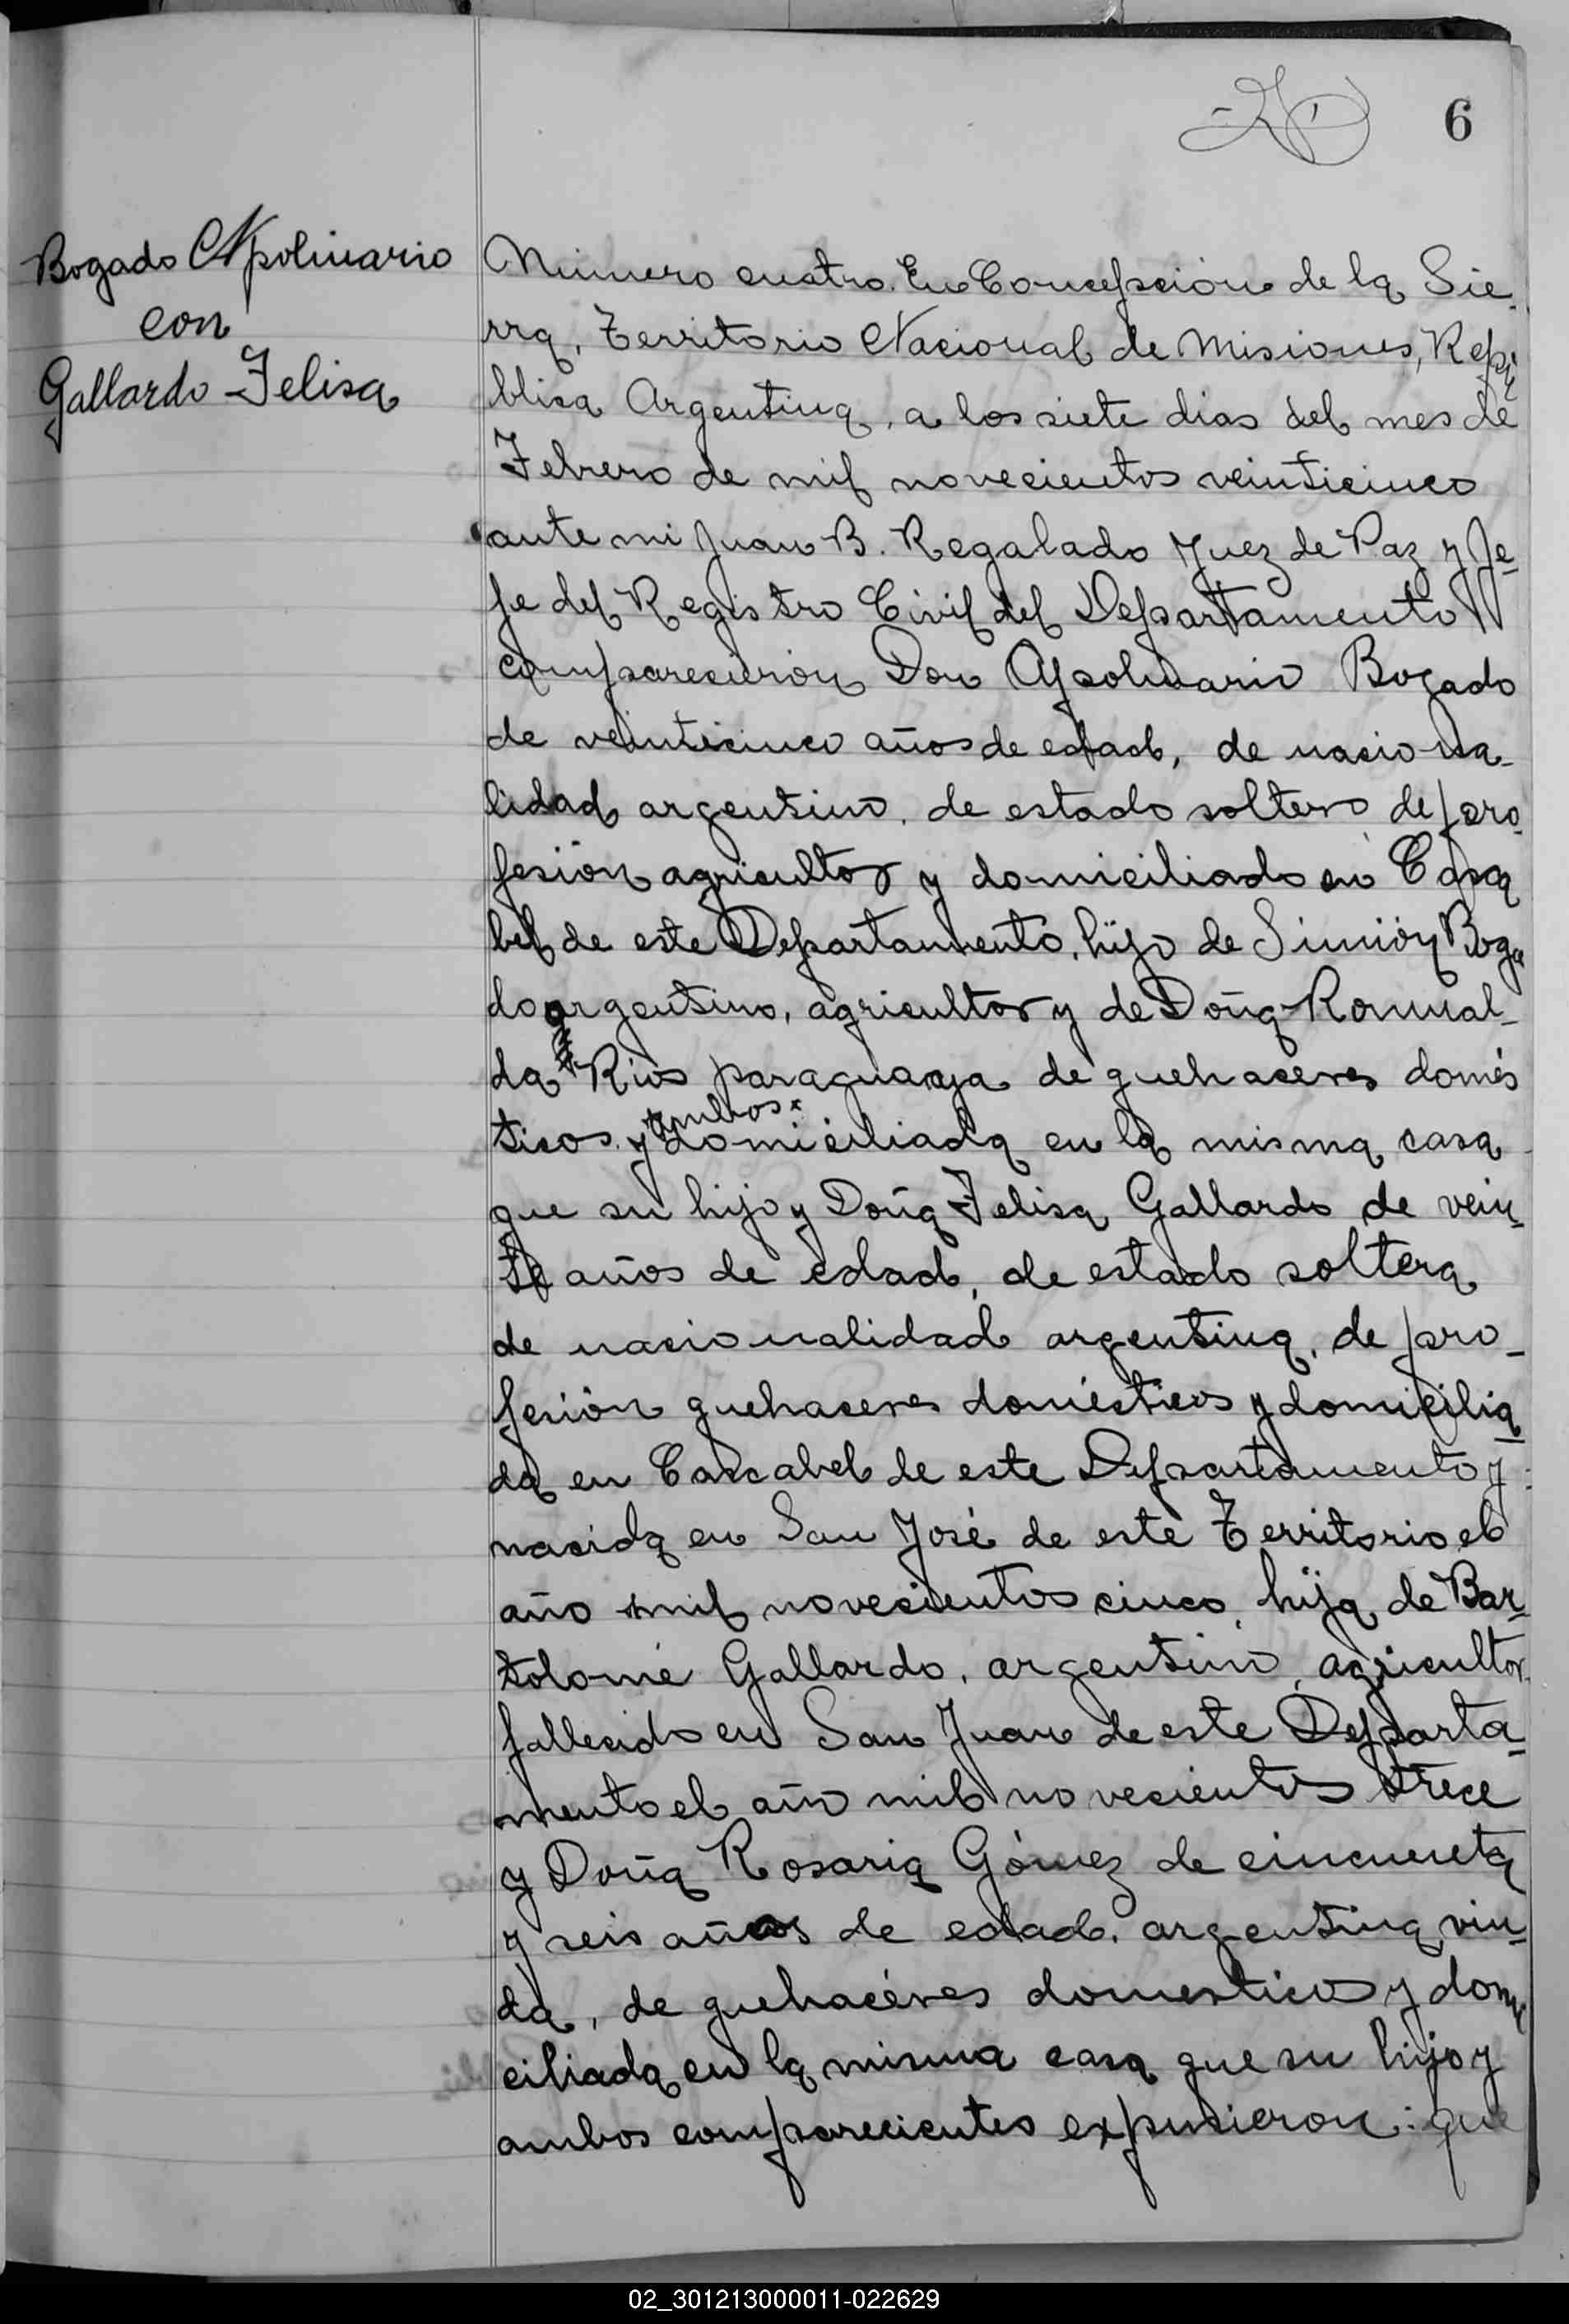 6
Bogado Apolinario
con
Gallardo Felisa
Número cuatro. En Concepción de la Sie-
rra, Territorio Nacional de Misiones, Repú
blica Argentina, a los siete dias del mes de
Febrero de mil novecientos veinticinco
ante mi Juan B. Regalado Juez de Paz y Je-
fe del Registro Civil del Departamento
comparecieron Don Apolinario Bogado
de veinticinco años de edad, de naciona-
lidad argentino, de estado soltero de pro-
fesión agricultor y domiciliado en
bel de este Departamento, hijo de Simión Boga
do argentino, agricultor y de Doña Romual-
da Rios paraguaya de quehaceres domés
ticos y ambos domiciliada en la misma casa
que su hijo y Doña Felisa Gallardo de vein-
te años de edad, de estado soltera
de nacionalidad argentina, de pro-
fesión quehaceres domésticos y domicilia-
da en Cascabel de este Departamento y
nacida en San José de este Territorio el
año mil novecientos cinco, hija de Bar-
tolomé Gallardo, argentino, agricultor
fallecido en San Juan de este Departa-
mento el año mil novecientos trece
y Doña Rosaria Gómez de cincuenta
y seis años de edad, argentina, viu-
da, de quehacéres domesticos y domi
ciliada en la misma casa que su hijo y
ambos comparecientes expusieron: que
02_301213000011-022629